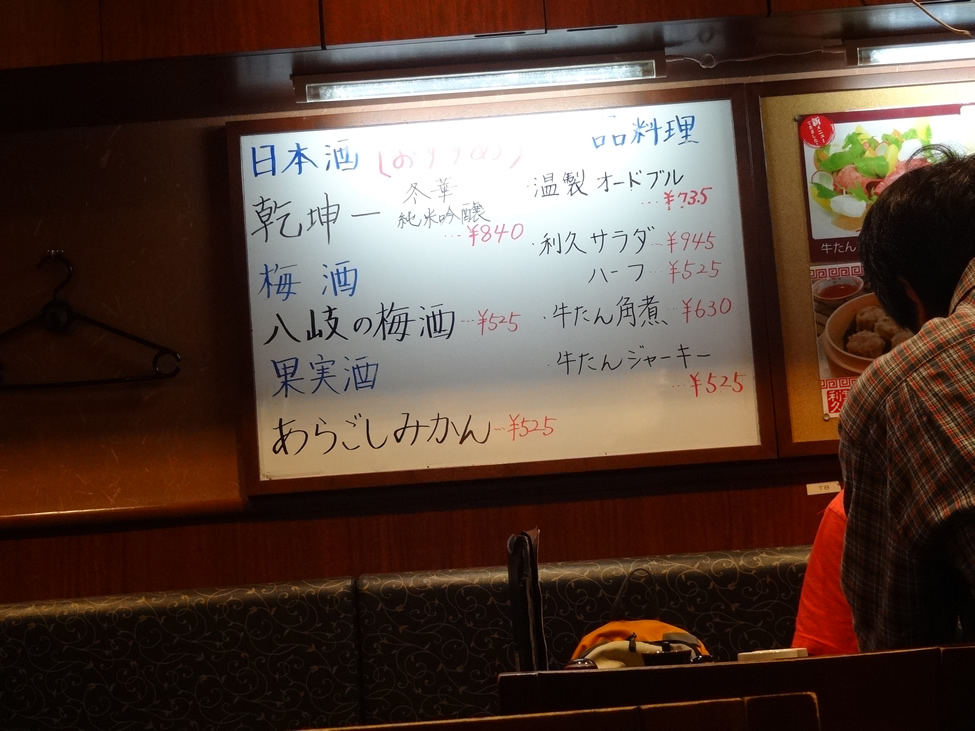 日本酒 (おすすめ)
乾坤一 冬華
純米吟醸
…¥840
梅酒
八岐の梅酒…¥525
果実酒
あらごしみかん…¥525
一品料理
・温製オードブル
…¥735
・利久サラダ…¥945
ハーフ…¥525
・牛たん角煮…¥630
・牛たんジャーキー
…¥525
新メニュー
牛たん
利久